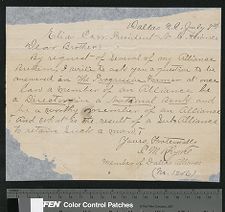 Dallas N.C. July 1st
Elias Carr President N.C. Alliance
Dear Brother:
By request of several of my Alliance
Brethren, I write to ask you a question to be
answered in The Progressive Farmer at once
Can a member of an Alliance be
a Director in a National bank and
be a worthy member of an Alliance
? And what is the result of a Sub Alliance
to retain such a man?
Yours Fraternally
member of Dallas Alliance
(No. 1206)
FEN Color Control Patches